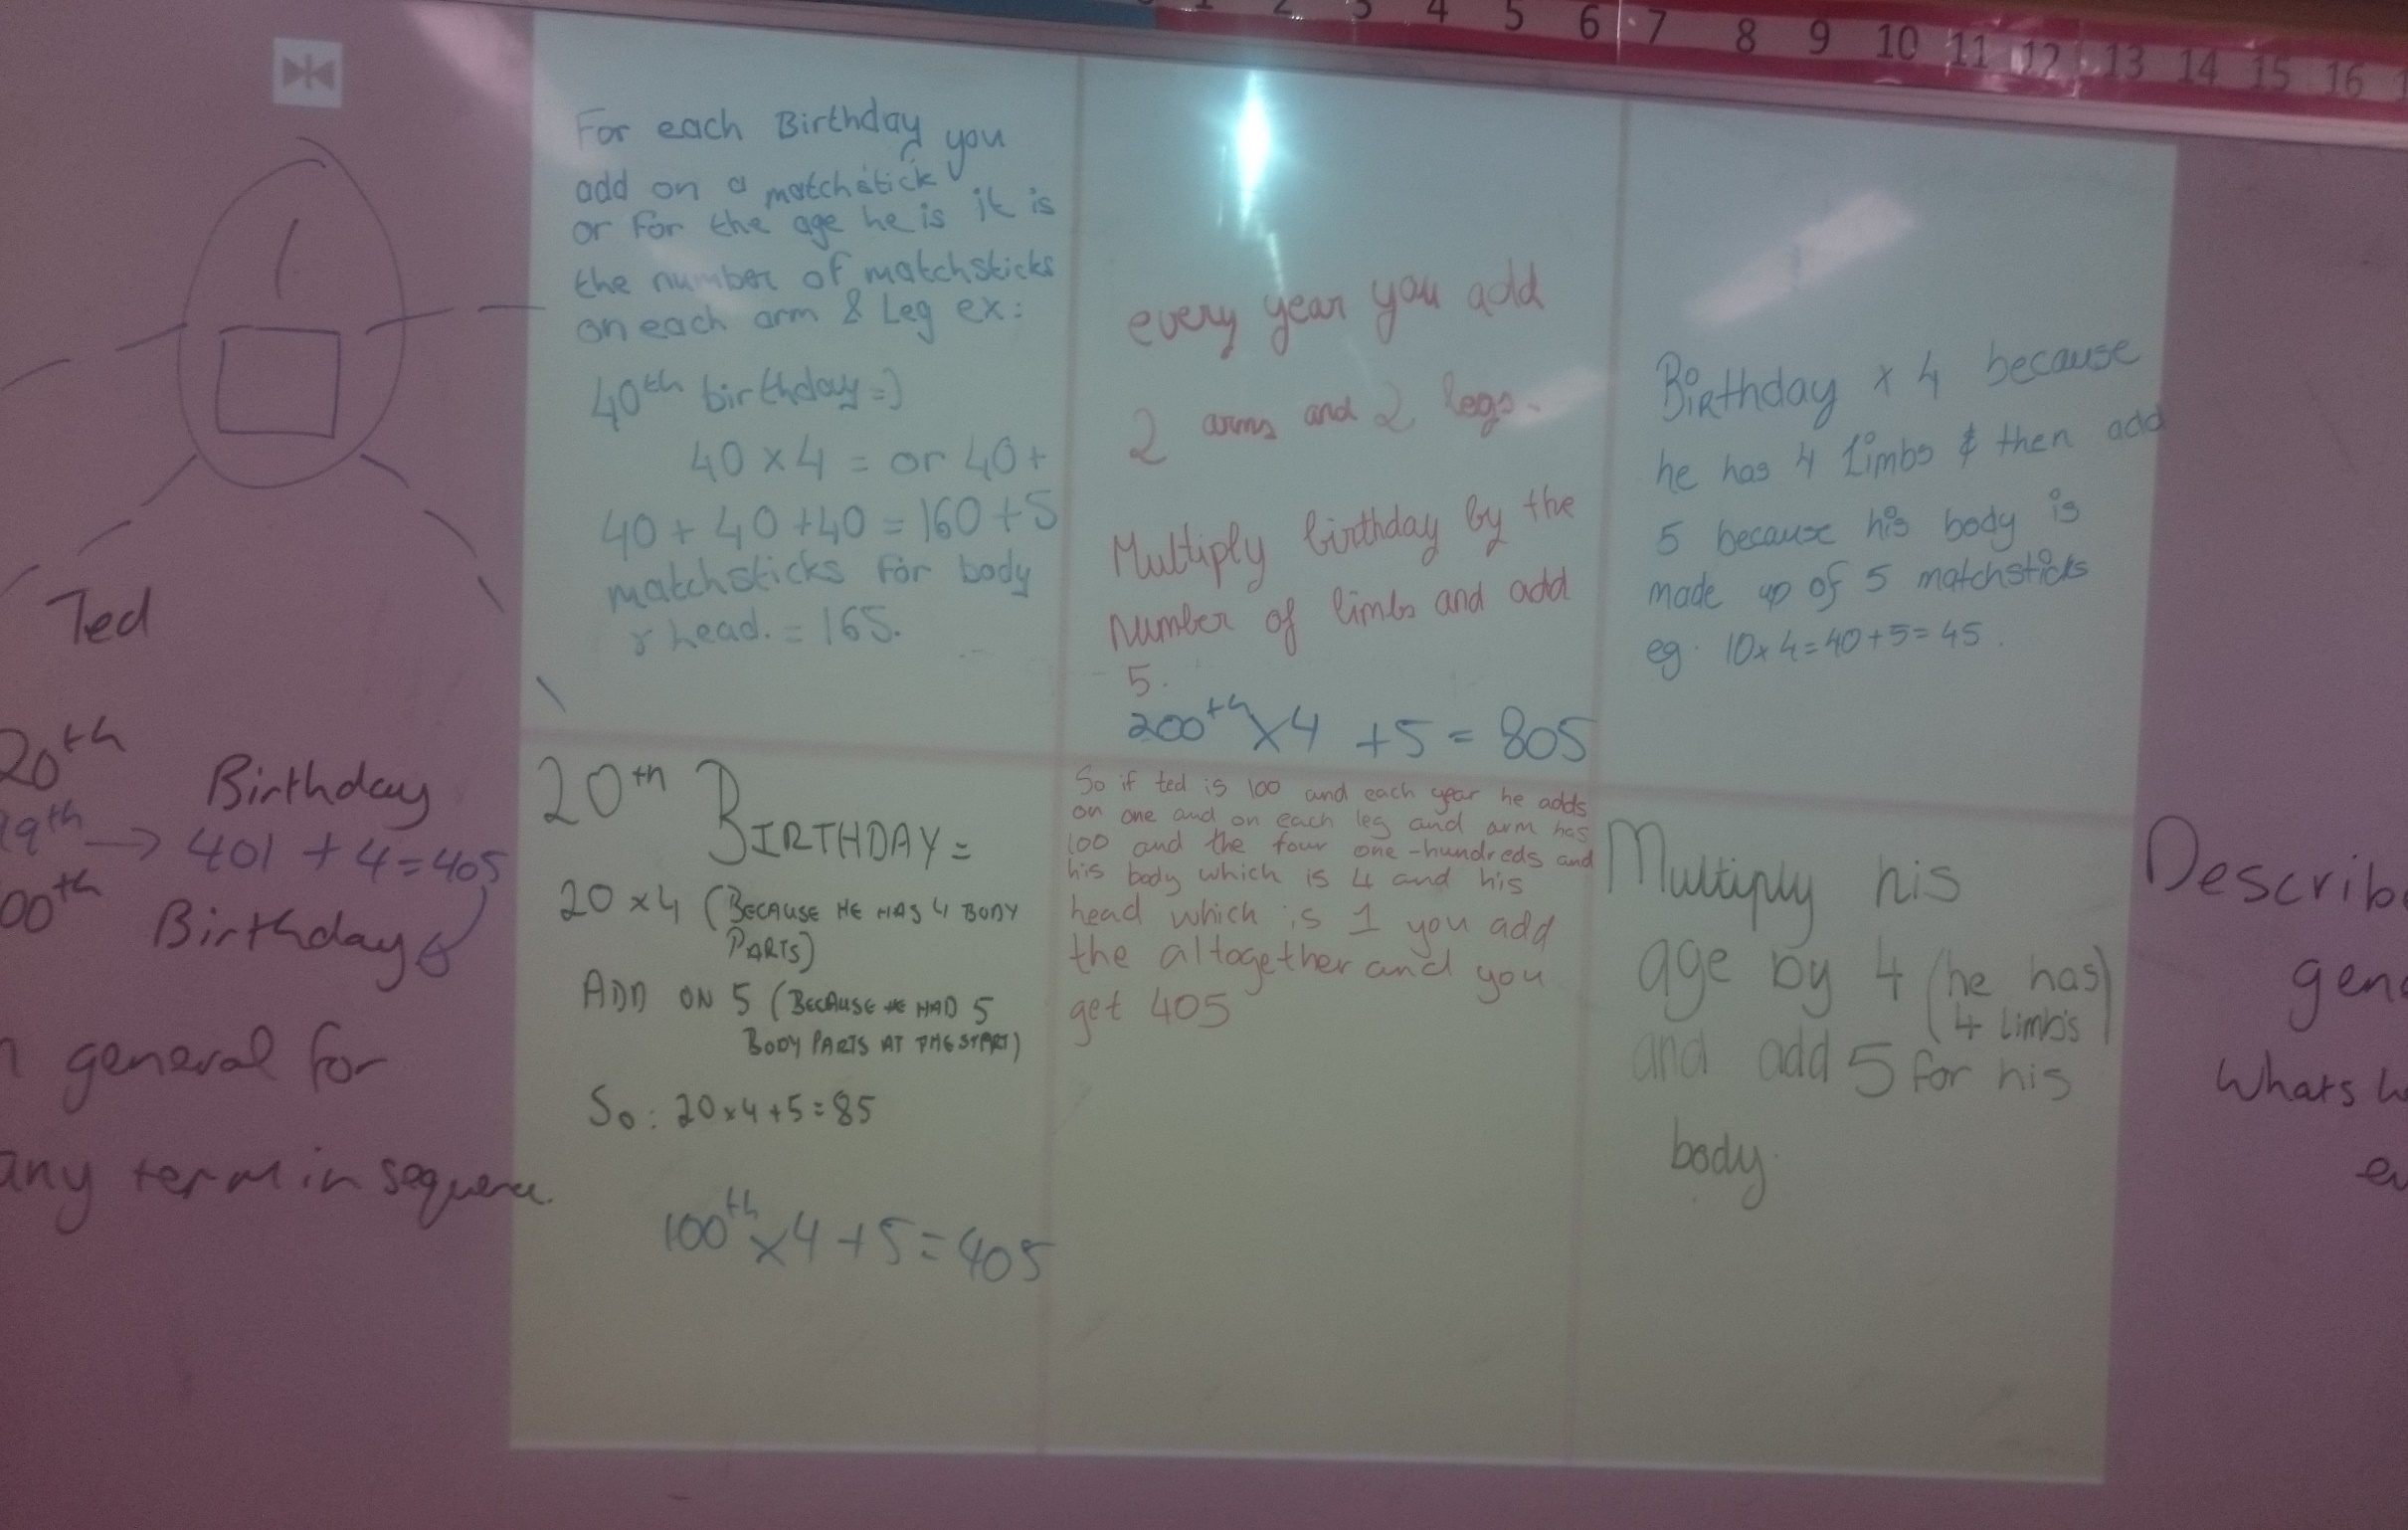 2 3 4 5 6 7 8 9 10 11 12 13 14 15 16
For each Birthday you
add on a matchstick
or for the age he is it is
the number of matchsticks
on each arm & Leg ex:
40th birthday =)
40 x 4 = or 40 +
40 + 40 + 40 = 160 + 5
matchsticks for body
head. = 165.
every year you add
2 arms and 2 legs.
Multiply birthday by the
number of limbs and add
5.
200th x 4 + 5 = 805
Birthday x 4 because
he has 4 Limbs & then add
5 because his body is
made up of 5 matchsticks
eg. 10 x 4 = 40 + 5 = 45.
Ted
20th
Birthday
99th → 401 + 4 = 405
00th
Birthday
general for
any term in sequence.
20th BIRTHDAY =
20 x 4 (BECAUSE HE HAS 4 BODY
PARTS)
ADD ON 5 (BECAUSE HE HAD 5
BODY PARTS AT THE START)
So: 20 x 4 + 5 = 85
100th x 4 + 5 = 405
So if ted is 100 and each year he adds
on one and on each leg and arm has
100 and the four one-hundreds and
his body which is 4 and his
head which is 1 you add
the altogether and you
get 405
Multiply his
age by 4 (he has
4 limbs)
and add 5 for his
body.
Describ
gen
whats